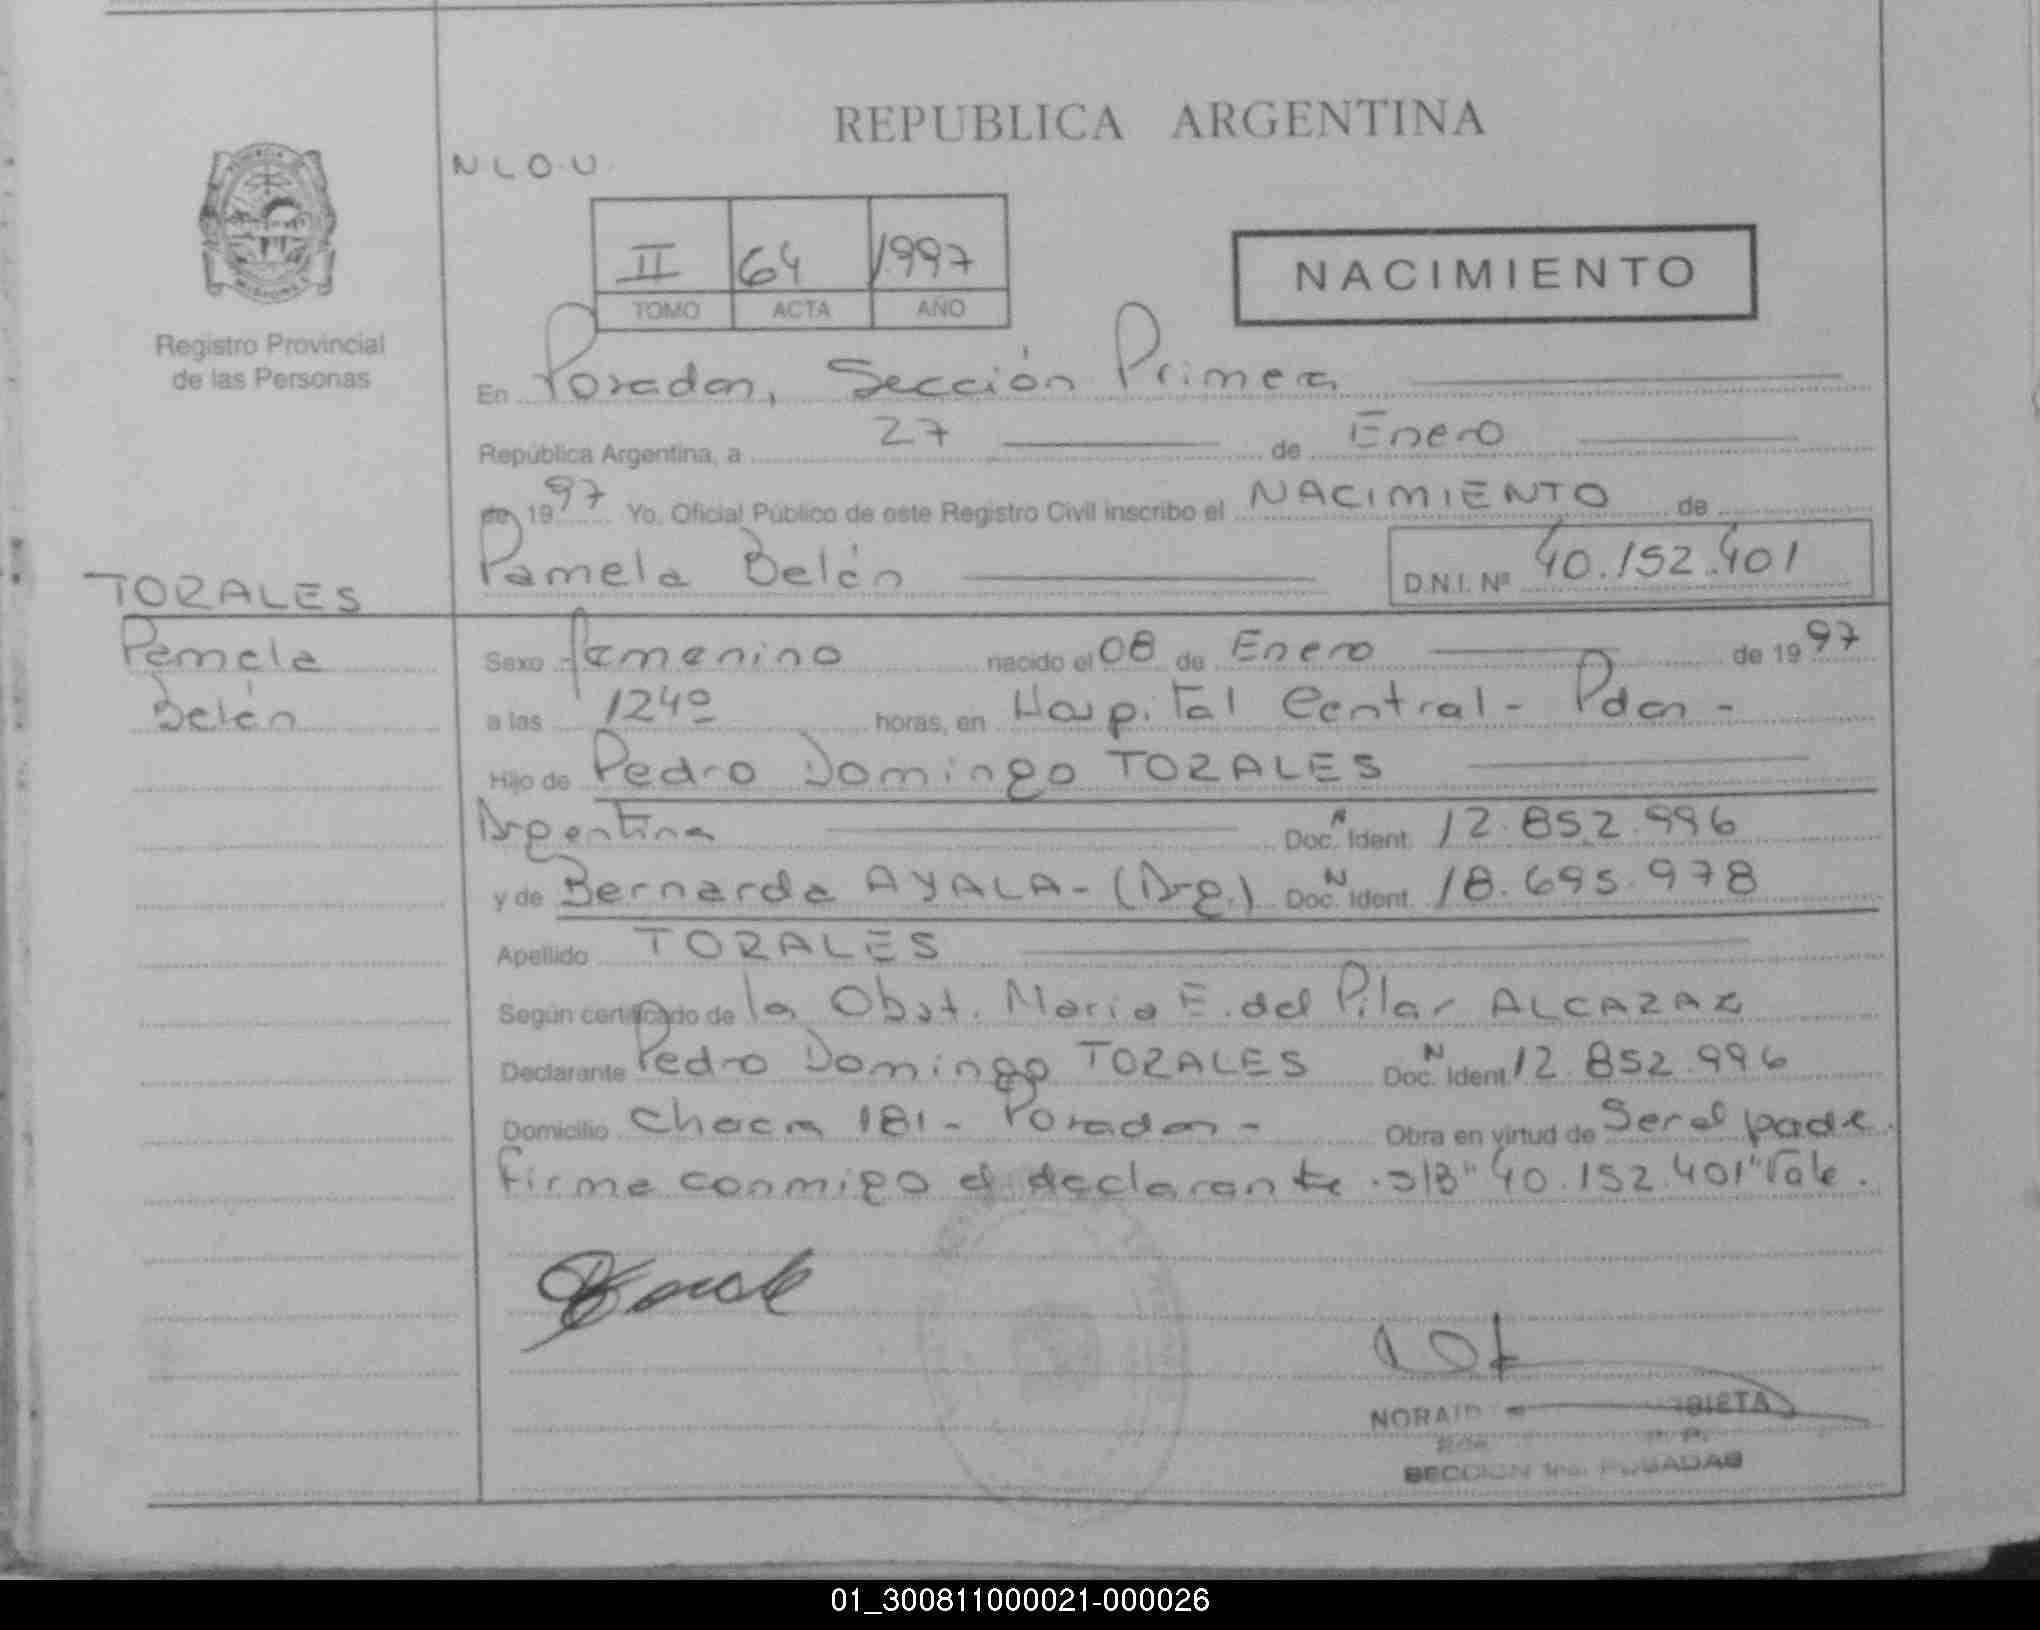 REPUBLICA ARGENTINA
N L O U
II 64 1997
TOMO ACTA AÑO
NACIMIENTO
Registro Provincial
de las Personas
En Posadas, Sección Primera
República Argentina, a 27 de Enero
de 1997 Yo, Oficial Público de este Registro Civil inscribo el NACIMIENTO de
Pamela Belén D.N.I. Nº 40.152.401
TORALES
Pamela
Belén
Sexo femenino nacido el 08 de Enero de 1997
a las 1240 horas, en Hospital Central - Pdas -
Hijo de Pedro Domingo TORALES
Argentina Doc. N Ident. 12.852.996
y de Bernarda AYALA - (Arg.) Doc. N Ident. 18.695.978
Apellido TORALES
Según certificado de la Obst. Maria E. del Pilar ALCARAZ
Declarante Pedro Domingo TORALES Doc. N Ident. 12.852.996
Domicilio Chacra 181 - Posadas - Obra en virtud de Ser el padre.
Firma conmigo el declarante. s/B "40.152.401" Vale.
SECCION 1ra. POSADAS
01_300811000021-000026